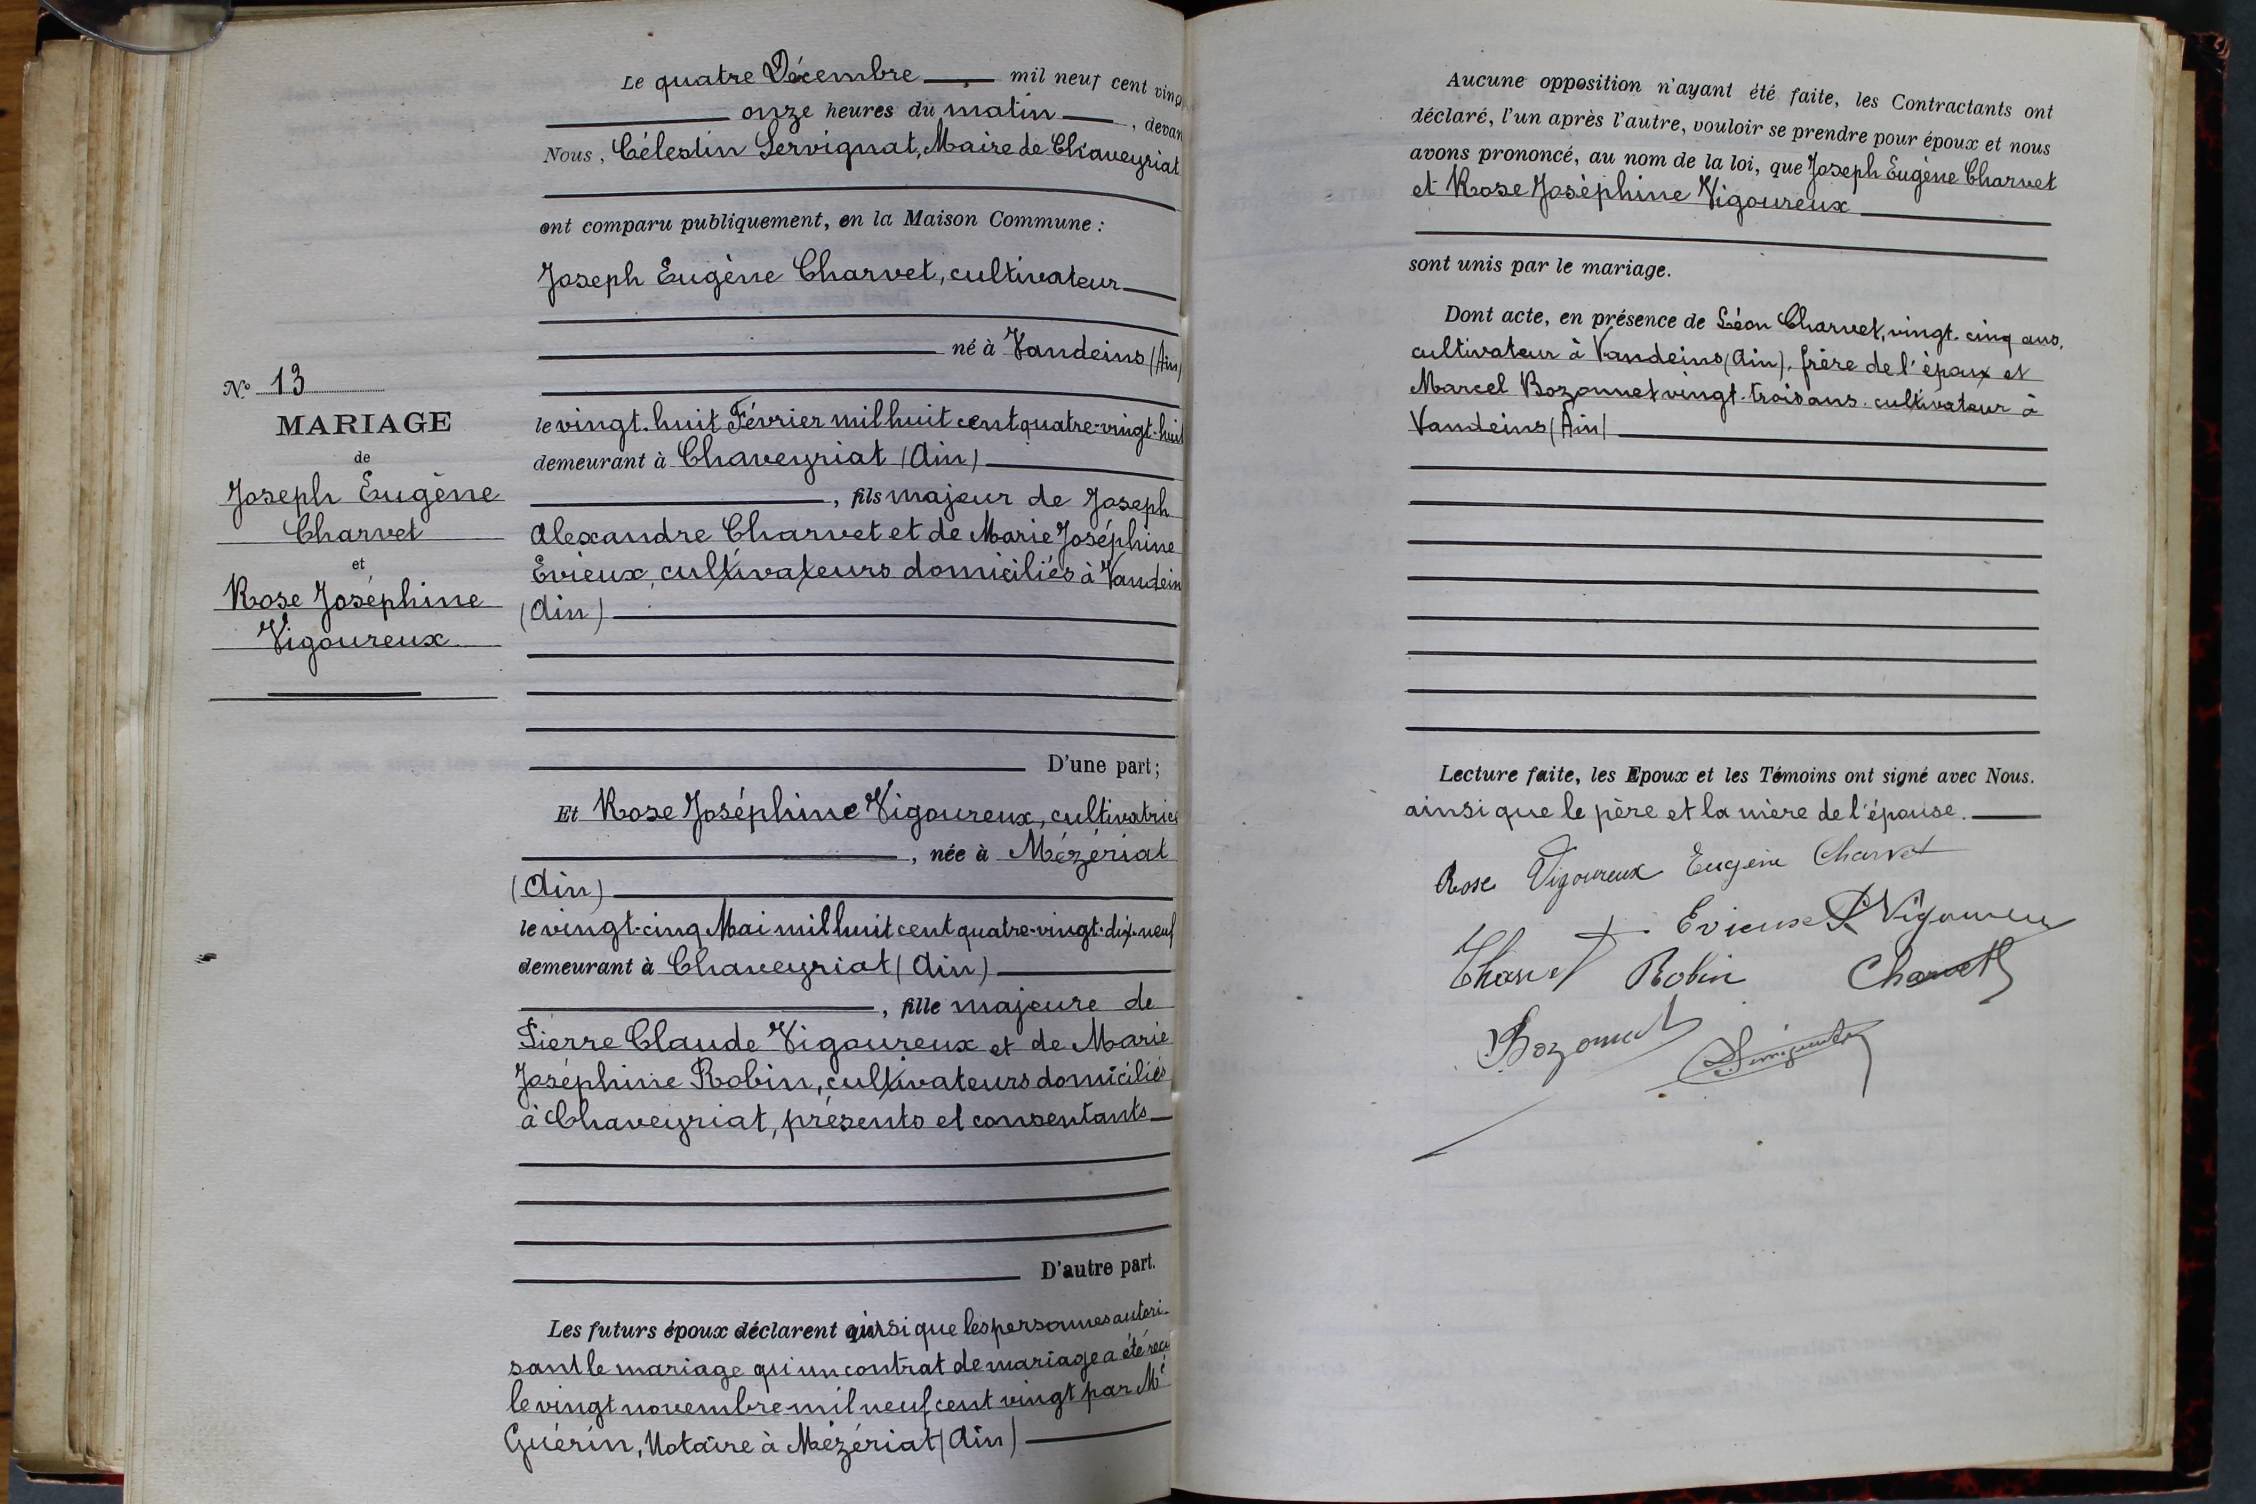 Le quatre Décembre mil neuf cent vingt
onze heures du matin, devan
Nous, Célestin Servignat, Maire de Chaveyriat
ont comparu publiquement, en la Maison Commune :
Joseph Eugène Charvet, cultivateur
né à Vandeins (Ain)
le vingt-huit Février mil huit cent quatre-vingt-huit
demeurant à Chaveyriat (Ain)
, fils majeur de Joseph
Alexandre Charvet et de Marie Joséphine
Evieux, cultivateurs domiciliés à Vandein
(Ain)
D'une part ;
Et Rose Joséphine Vigoureux, cultivatrice
, née à Mézériat
(Ain)
le vingt-cinq Mai mil huit cent quatre-vingt-dix-neuf
demeurant à Chaveyriat (Ain)
, fille majeure de
Pierre Claude Vigoureux et de Marie
Joséphine Robin, cultivateurs domiciliés
à Chaveyriat, présents et consentants
D'autre part.
Les futurs époux déclarent ainsi que les personnes autori-
sant le mariage qu'un contrat de mariage a été reçu
le vingt novembre mil neuf cent vingt par Me
Guérin, Notaire à Mézériat (Ain)
No 13
MARIAGE
de
Joseph Eugène
Charvet
et
Rose Joséphine
Vigoureux
Aucune opposition n'ayant été faite, les Contractants ont
déclaré, l'un après l'autre, vouloir se prendre pour époux et nous
avons prononcé, au nom de la loi, que Joseph Eugène Charvet
et Rose Joséphine Vigoureux
sont unis par le mariage.
Dont acte, en présence de Léon Charvet, vingt-cinq ans,
cultivateur à Vandeins (Ain), frère de l'époux et
Marcel Bozonnet vingt-trois ans, cultivateur à
Vandeins (Ain)
Lecture faite, les Epoux et les Témoins ont signé avec Nous.
ainsi que le père et la mère de l'épouse.
Rose Vigoureux Eugène Charvet
Evieux Vigoureux
Charvet Robin Charvet
Bozonnet Servignat